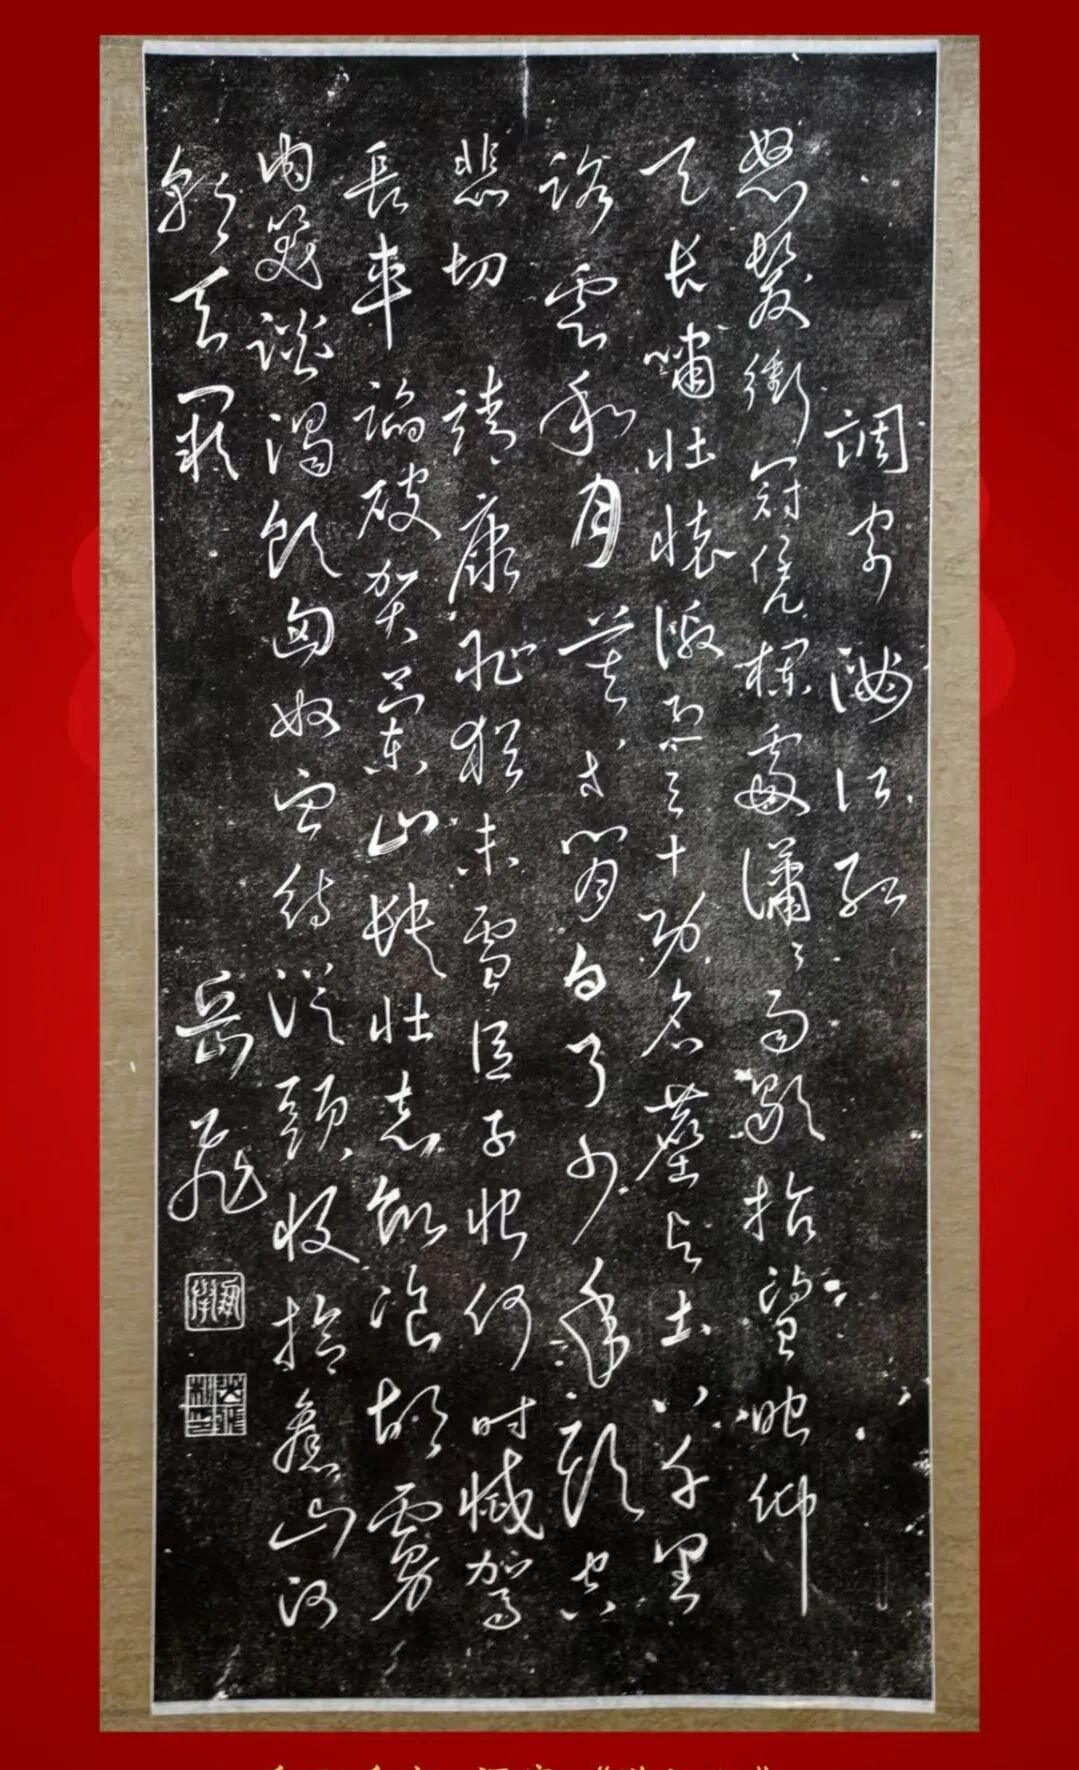 調寄滿江紅
怒髮衝冠凭欄處瀟〻雨歇抬望眼仰
天長嘯壯懷激烈三十功名塵与土八千里
路雲和月莫等閑白了少年頭空
悲切 靖康恥猶未雪臣子恨何時滅駕
長車踏破賀蘭山缺壯志飢飡胡虜
肉笑談渴飲匈奴血待從頭收拾舊山河
朝天闕
岳飛